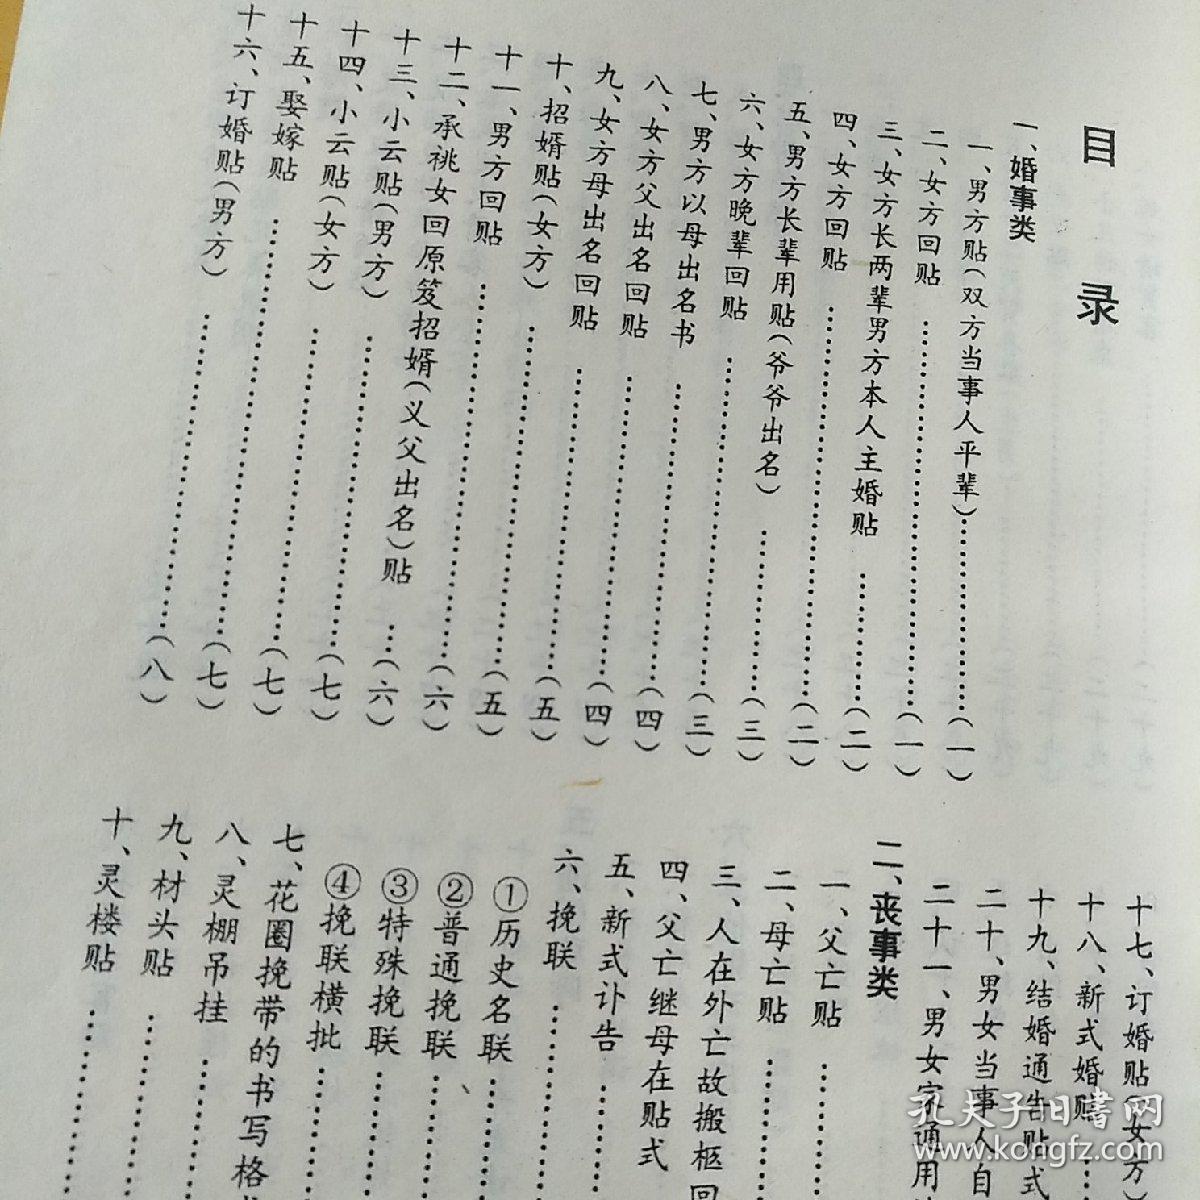 目录
一、婚事类
一、男方贴(双方当事人平辈)……(一)
二、女方回贴……(一)
三、女方长两辈男方本人主婚贴……(二)
四、女方回贴……(二)
五、男方长辈用贴(爷爷出名)……(三)
六、女方晚辈回贴……(三)
七、男方以母出名书……(四)
八、女方父出名回贴……(四)
九、女方母出名回贴……(五)
十、招婿贴(女方)……(五)
十一、男方回贴……(六)
十二、承祧女回原笈招婿(义父出名)贴…(六)
十三、小云贴(男方)……(七)
十四、小云贴(女方)……(七)
十五、娶嫁贴……(七)
十六、订婚贴(男方)……(八)
十七、订婚贴(女方)
十八、新式婚贴……
十九、结婚通告贴式
二十、男女当事人自
二十一、男女家通用
二、丧事类
一、父亡贴……
二、母亡贴……
三、人在外亡故搬柩回
四、父亡继母在贴式
五、新式讣告……
六、挽联……
①历史名联……
②普通挽联……
③特殊挽联……
④挽联横批……
七、花圈挽带的书写格
八、灵棚吊挂……
九、材头贴……
十、灵楼贴……
孔夫子旧书网
www.kongfz.com